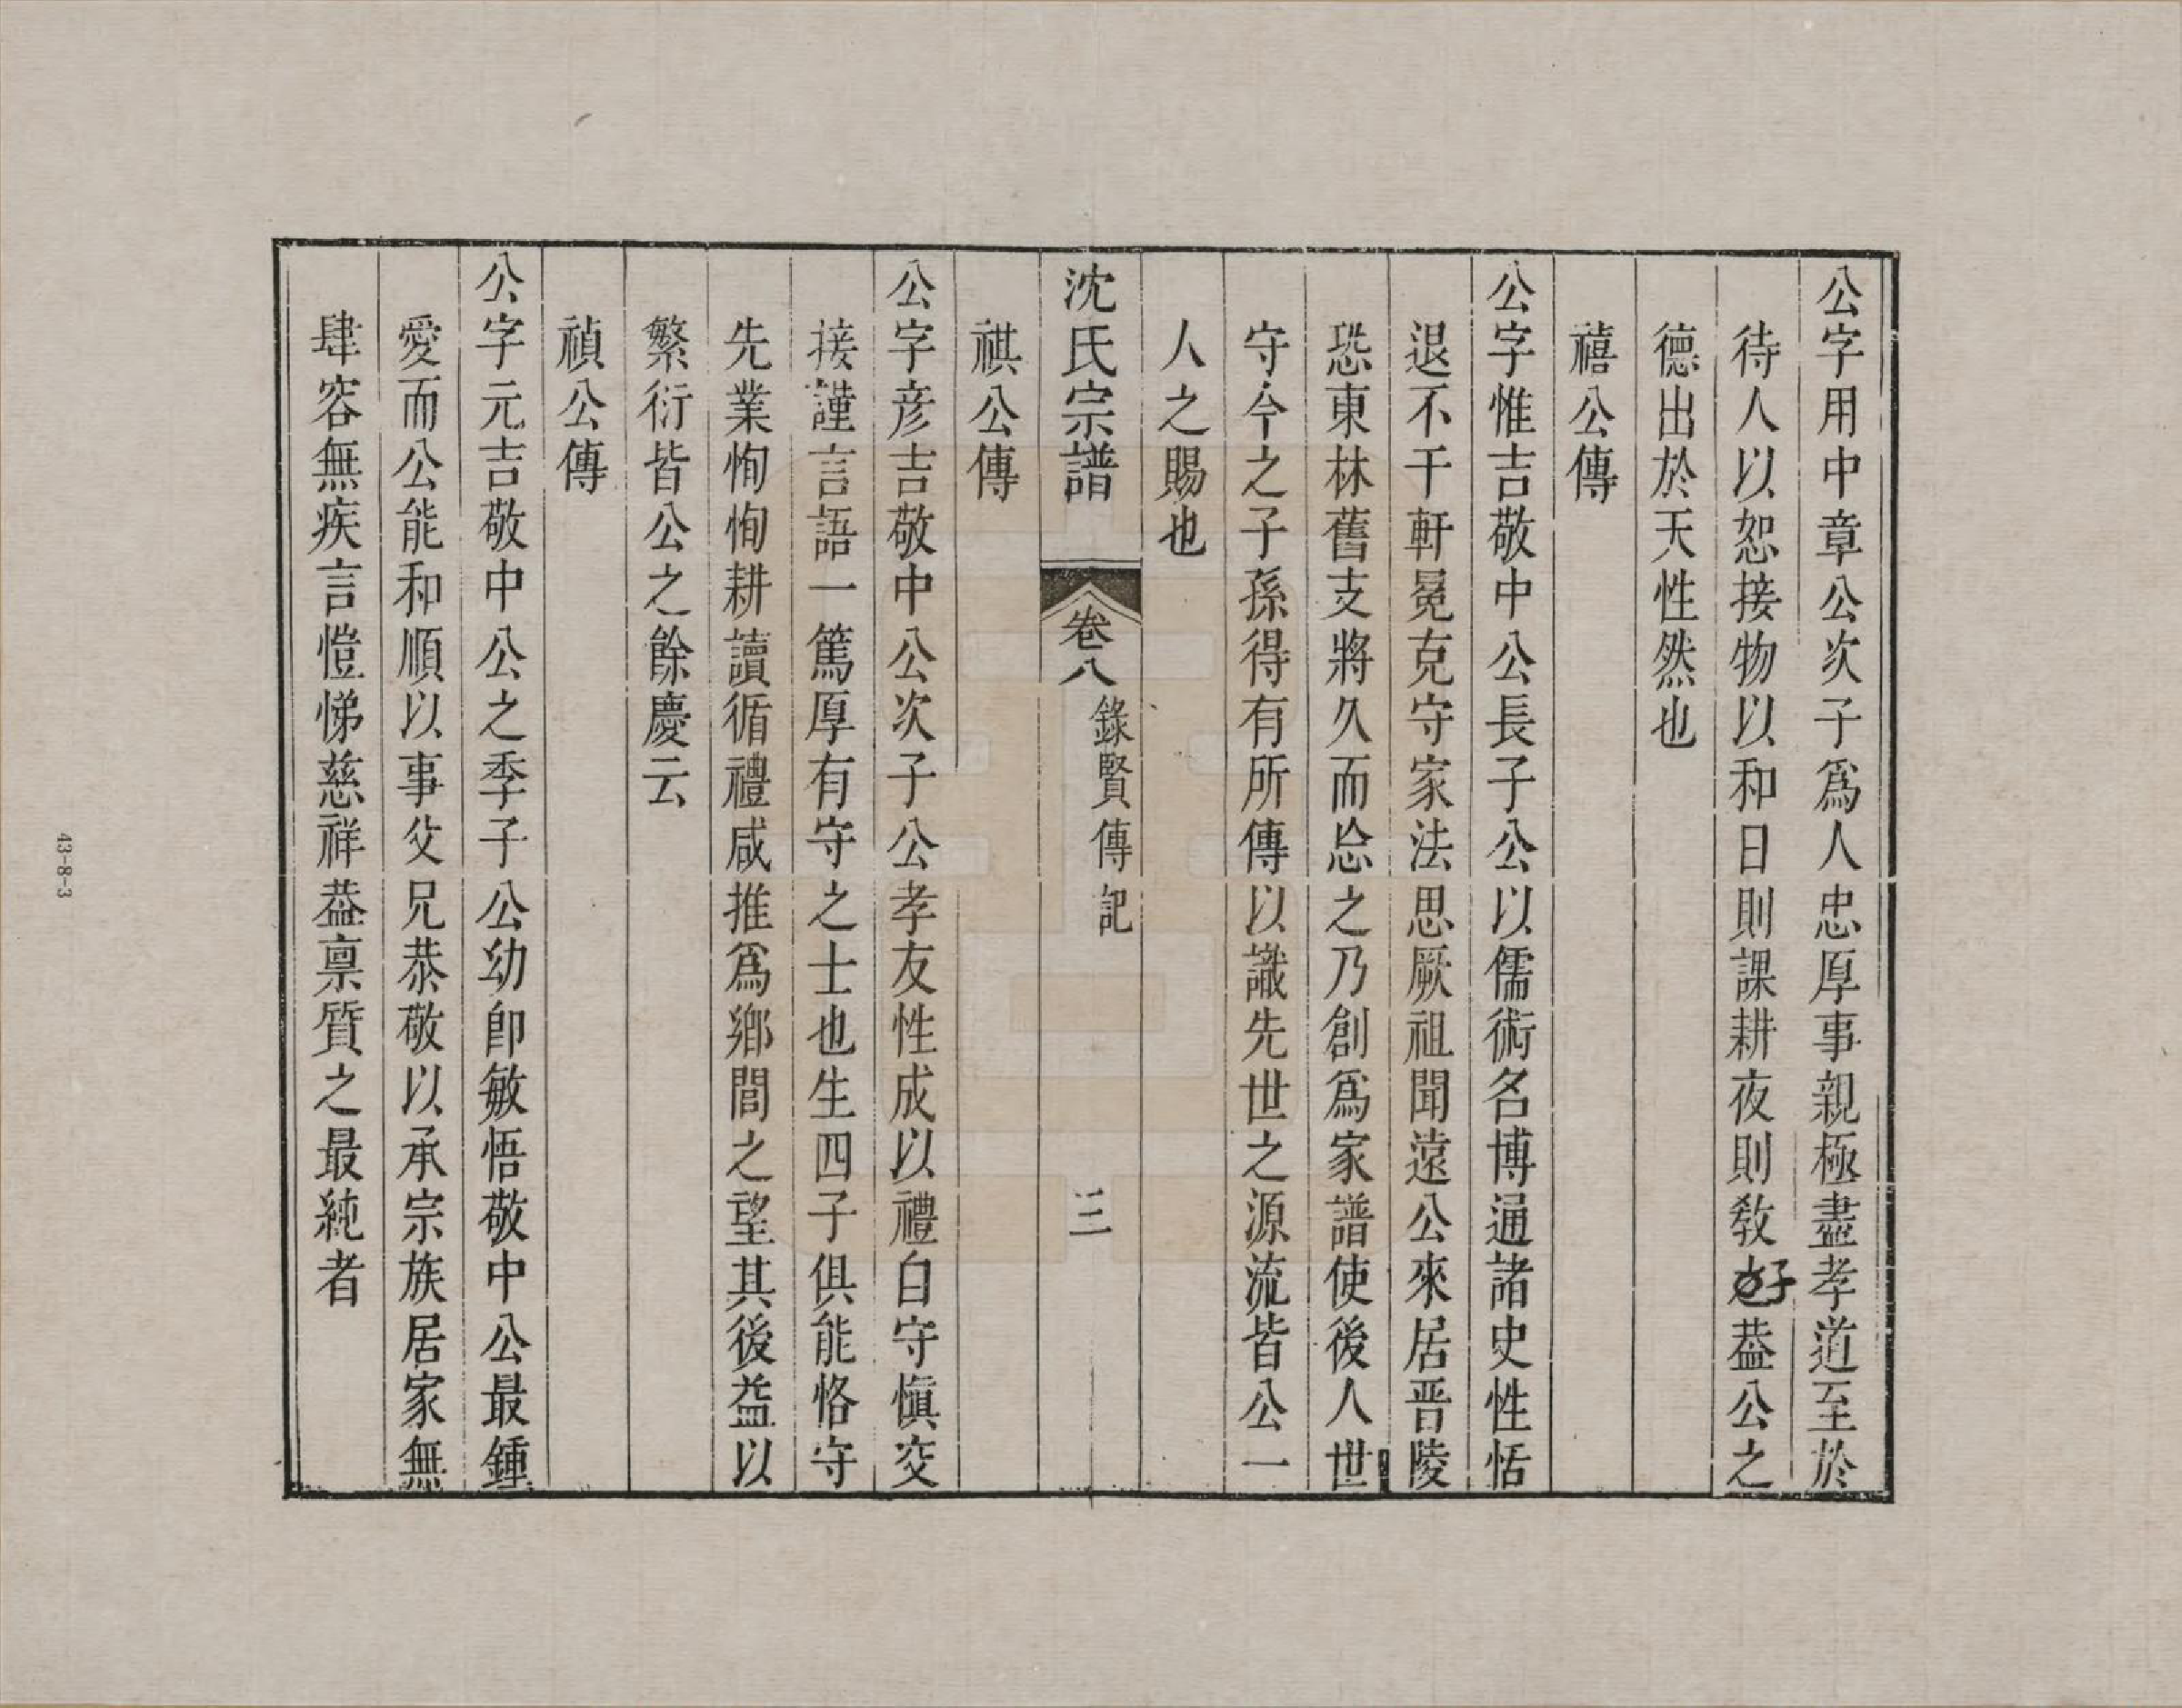 公字用中章公次子爲人忠厚事親極盡孝道至於
待人以恕接物以和日則課耕夜則敎好葢公之
德出於天性然也
禧公傳
公字惟吉敬中公長子公以儒術名博通諸史性恬
退不干軒冕克守家法思厥祖聞遠公來居晋陵
恐東林舊支將久而忩之乃創爲家譜使後人世
守今之子孫得有所傳以識先世之源流皆公一
人之賜也
沈氏宗譜
卷八
錄賢傳記
三
祺公傳
公字彦吉敬中公次子公孝友性成以禮自守愼交
接謹言語一篤厚有守之士也生四子俱能恪守
先業恂恂耕讀循禮咸推爲鄕閭之望其後益以
繁衍皆公之餘慶云
禎公傳
公字元吉敬中公之季子公幼卽敏悟敬中公最鍾
愛而公能和順以事父兄恭敬以承宗族居家無
肆容無疾言愷悌慈祥葢禀質之最純者
43-8-3